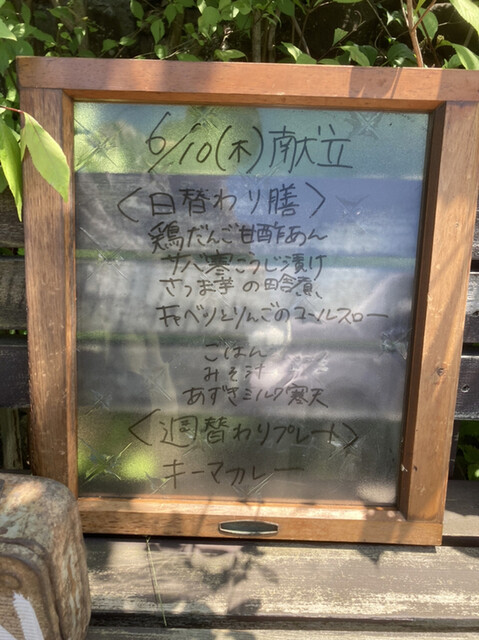 6/10(木)献立
〈日替わり膳〉
鶏だんご甘酢あん
サバ寒こうじ漬け
さつま芋の田舎煮
キャベツとりんごのコールスロー
ごはん
みそ汁
あずきミルク寒天
〈週替わりプレート〉
キーマカレー